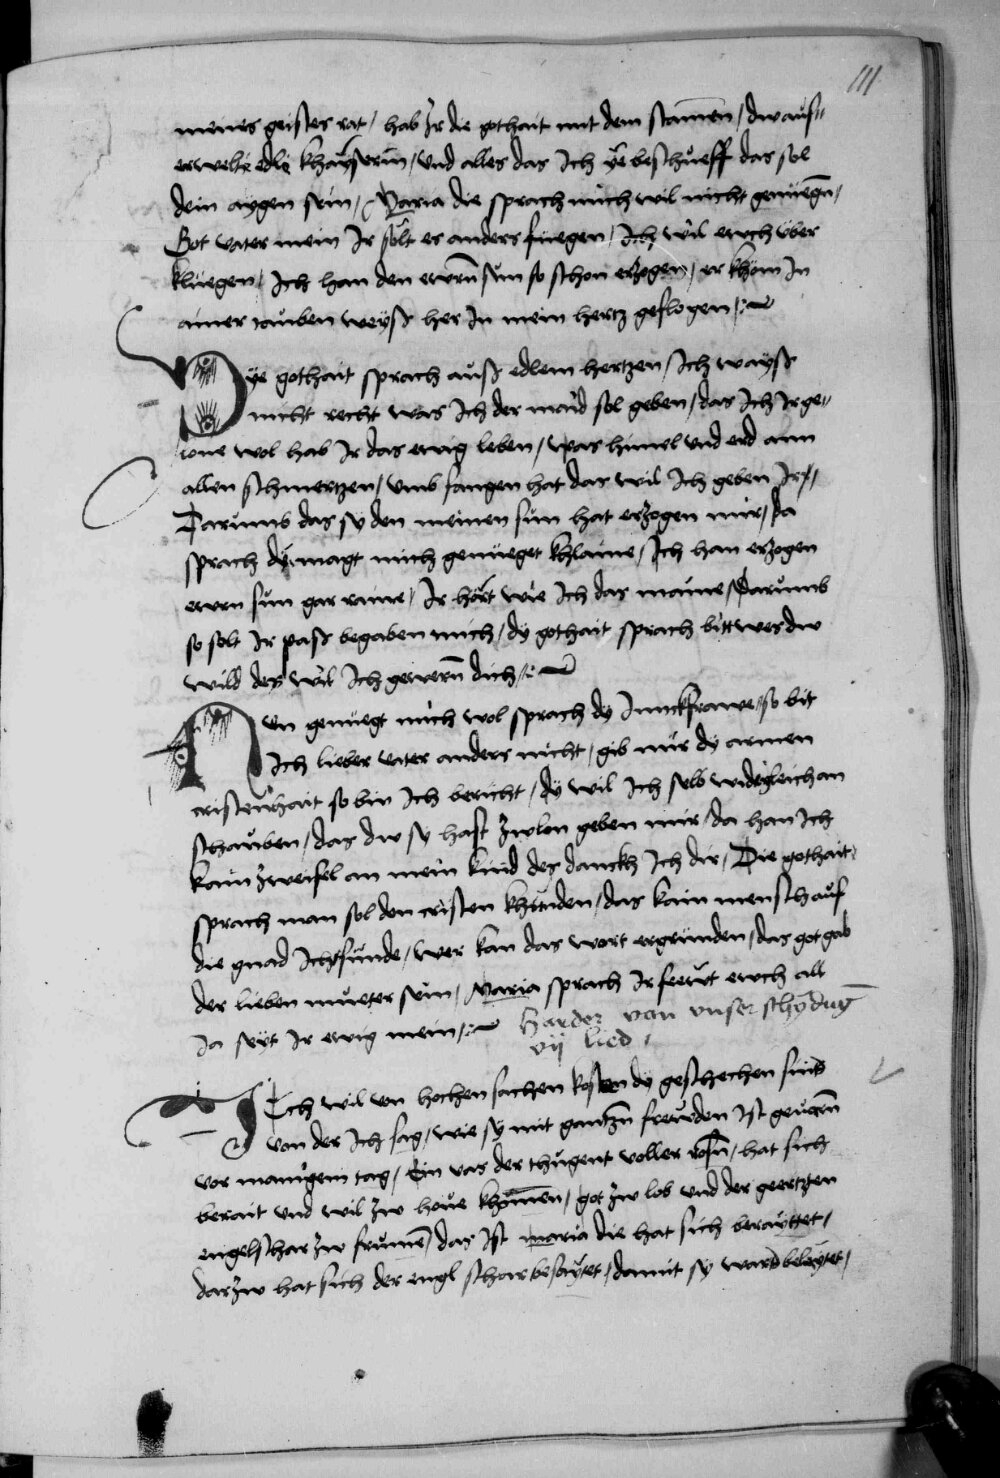 111
meines geistes rat / hab Ir die gothait mit dem stamen / dw aus=
erwelte edle khayserin / und alles das Ich ye beschueff das sol
dein aygen sein / Maria die sprach mich wil nicht genuegn /
Got vater mein Ir solt es anders fuegen / Ich wil ewch über
kluegen / Ich han den ewrn sun so schon erzogen / er kham In
ainer tauben weyß her In mein hertz geflogen /
Dye gothait sprach auß edlem hertzen / Ich wayß
nicht recht was Ich der maid sol geben / das Ich Ir ge=
lone wol hab Ir das ewig leben / was himel und erd ann
allen schmertzen / umb fangen hat das wil Ich geben Ir /
Darumb das sy den meinen sun hat erzogen mir / da
sprach dy magt mich genueget khlaine / Ich han erzogen
ewrn sun gar raine / Ir hort wie Ich das maine / Darumb
so solt Ir paß begaben mich / dy gothait sprach bitt wes dw
wild des wil Ich gewern dich /
Nun genuegt mich wol sprach dy Junckfrawe / so bit
Ich lieber vater anders nicht / gib mir dy armen
cristenhait so bin Ich bericht / dy wil Ich selb widergleich an
schauben / das dw sy hast zwlon geben mir / da han Ich
kain zweifel an mein kind des danckh Ich dir / Die gothait
sprach man sol den cristen khunden / das kain mensch auf
die gnad Icht sunde / wer kan das wort ergrunden / das got gab
der lieben mueter sein / Maria sprach Ir freut ewch all
Ja seyt Ir ewig mein / Harder von unser schydug
vij lied /
Ich wil von hochen sachen kosen dy geschechen sind
von der Ich sag / wie sy mit gantzn freuden Ist gewarn
vor manigem tag / Ein vas der thugent voller rosn / hat sich
berait und wil zw houe khomen / got zw lob und der geertzten
engelschar zw frumen / das Ist maria die hat sich berayttet /
darzw hat sich der engl schar besaytet / damit sy ward beleytet /